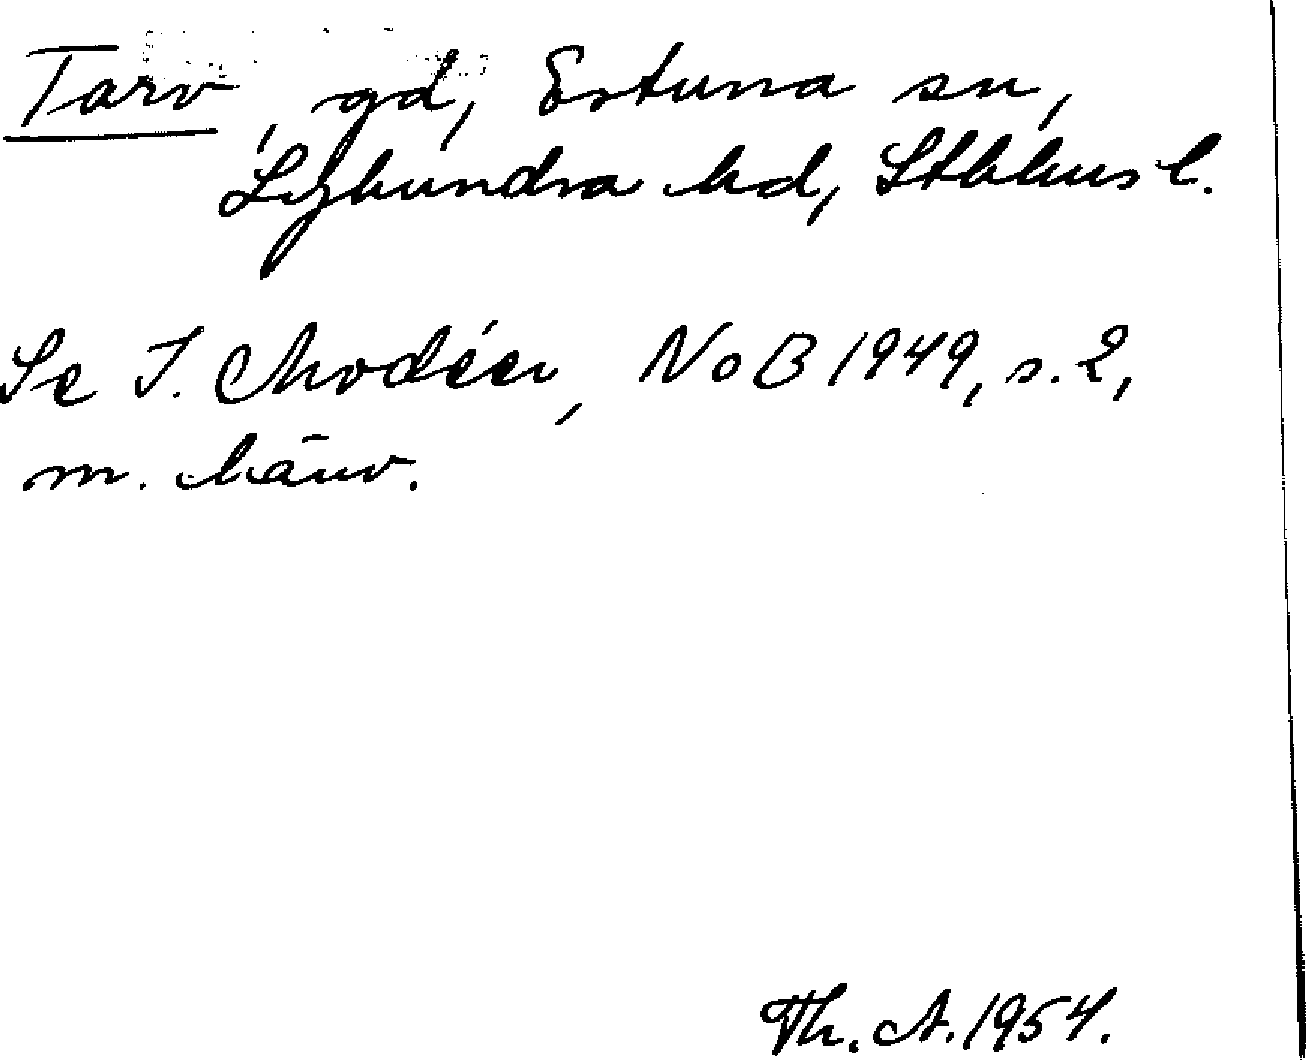 Tarv, gd, Estuna sn,
Lyhundra hd, Sthlms l.
Se I. Modéer, NoB 1949, s. 2,
m. hänv.
Th. A. 1954.